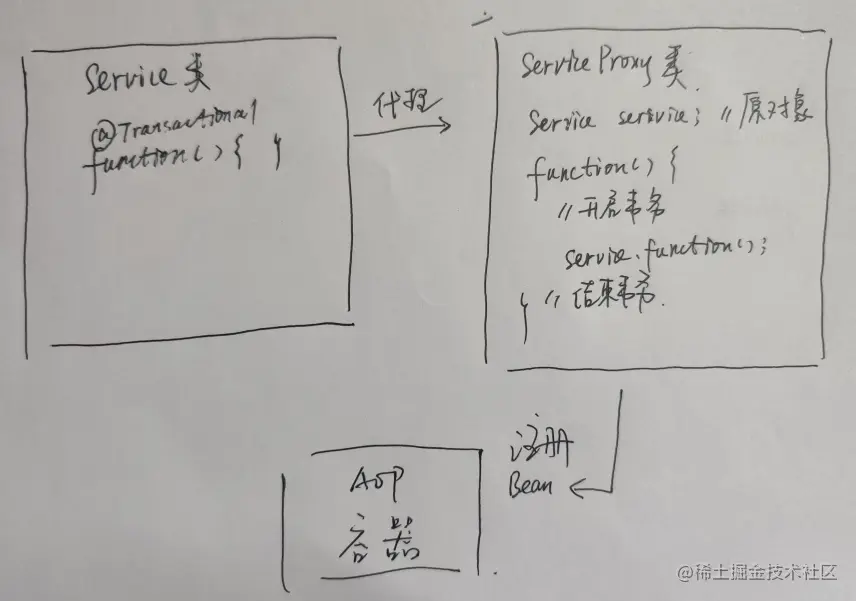 Service 类
@Transactional
function() { }
代理
ServiceProxy 类
Service service; // 原对象
function() {
// 开启事务
service.function();
} // 结束事务
注册
Bean
AOP
容器
@稀土掘金技术社区